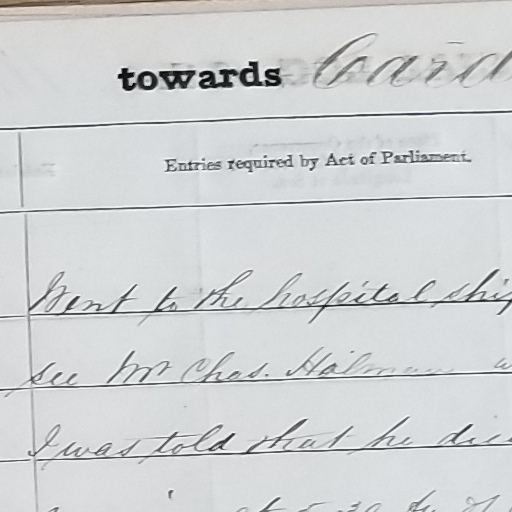 towards Card
Entries required by Act of Parliament.
Went to the hospital ship
see Mr Chas. Holman
I was told that he died
at 5.30